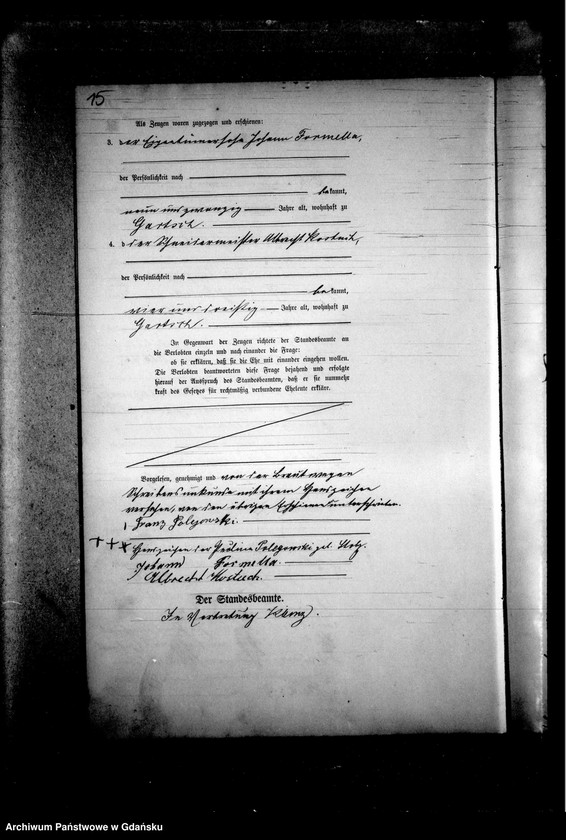 15
Als Zeugen waren zugezogen und erschienen:
3. der Eigentümersohn Johann Formella,
der Persönlichkeit nach
bekannt,
neun und zwanzig Jahre alt, wohnhaft zu
Gartsch.
4. der Schneidermeister Albrecht Kostuch,
der Persönlichkeit nach
bekannt,
vier und dreißig Jahre alt, wohnhaft zu
Gartsch.
In Gegenwart der Zeugen richtete der Standesbeamte an
die Verlobten einzeln und nach einander die Frage:
ob sie erklären, daß sie die Ehe mit einander eingehen wollen.
Die Verlobten beantworteten diese Frage bejahend und erfolgte
hierauf der Ausspruch des Standesbeamten, daß er sie nunmehr
kraft des Gesetzes für rechtmäßig verbundene Eheleute erkläre.
Vorgelesen, genehmigt und von der Braut wegen
Schreibensunkunde mit ihrem Handzeichen
versehen, von den übrigen Erschienenen unterschrieben.
Franz
+++ Handzeichen der Paulina geb.
Johann Formella.
Albrecht Kostuch.
Der Standesbeamte.
In Vertretung
Archiwum Państwowe w Gdańsku